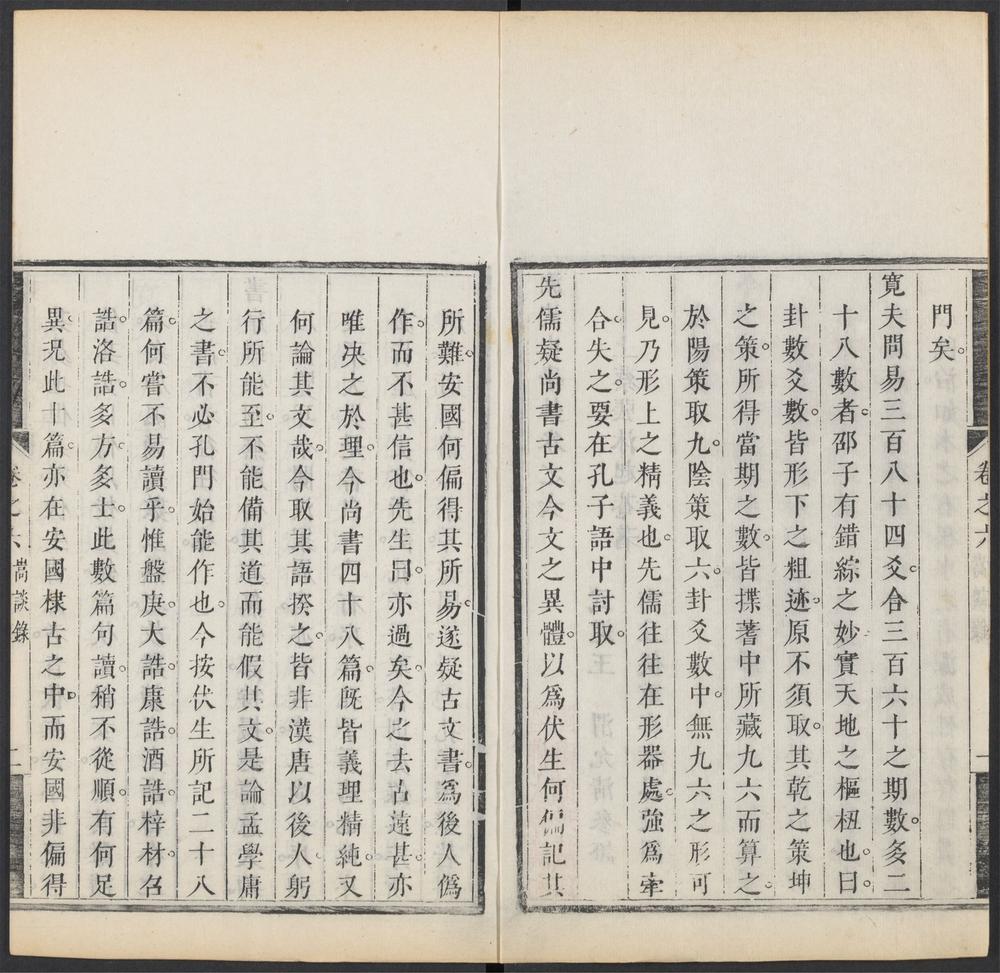 門矣。
寬夫問易三百八十四爻。合三百六十之期數。多二
十八數者。邵子有錯綜之妙實天地之樞杻也。曰。
卦數爻數。皆形下之粗迹。原不須取。其乾之策坤
之策。所得當期之數。皆揲蓍中所藏九六而算之。
於陽策取九。陰策取六。卦爻數中。無九六之形可
見。乃形上之精義也。先儒往往在形器處。強爲牽
合。失之。要在孔子語中討取。
先儒疑尚書古文今文之異體。以爲伏生何偏記其
所難。安國何偏得其所易。遂疑古文書。爲後人僞
作。而不甚信也。先生曰。亦過矣。今之去古遠甚。亦
唯决之於理。今尚書四十八篇。旣皆義理精純。又
何論其文哉。今取其語揆之。皆非漢唐以後人。躬
行所能至。不能備其道而能假其文。是論孟學庸
之書。不必孔門始能作也。今按伏生所記二十八
篇。何嘗不易讀乎。惟盤庚。大誥。康誥。酒誥。梓材。召
誥。洛誥。多方。多士。此數篇句讀。稍不從順。有何足
異。况此十篇。亦在安國棣古之中。而安國非偏得
卷之六
一
卷之六 嵩談錄
二